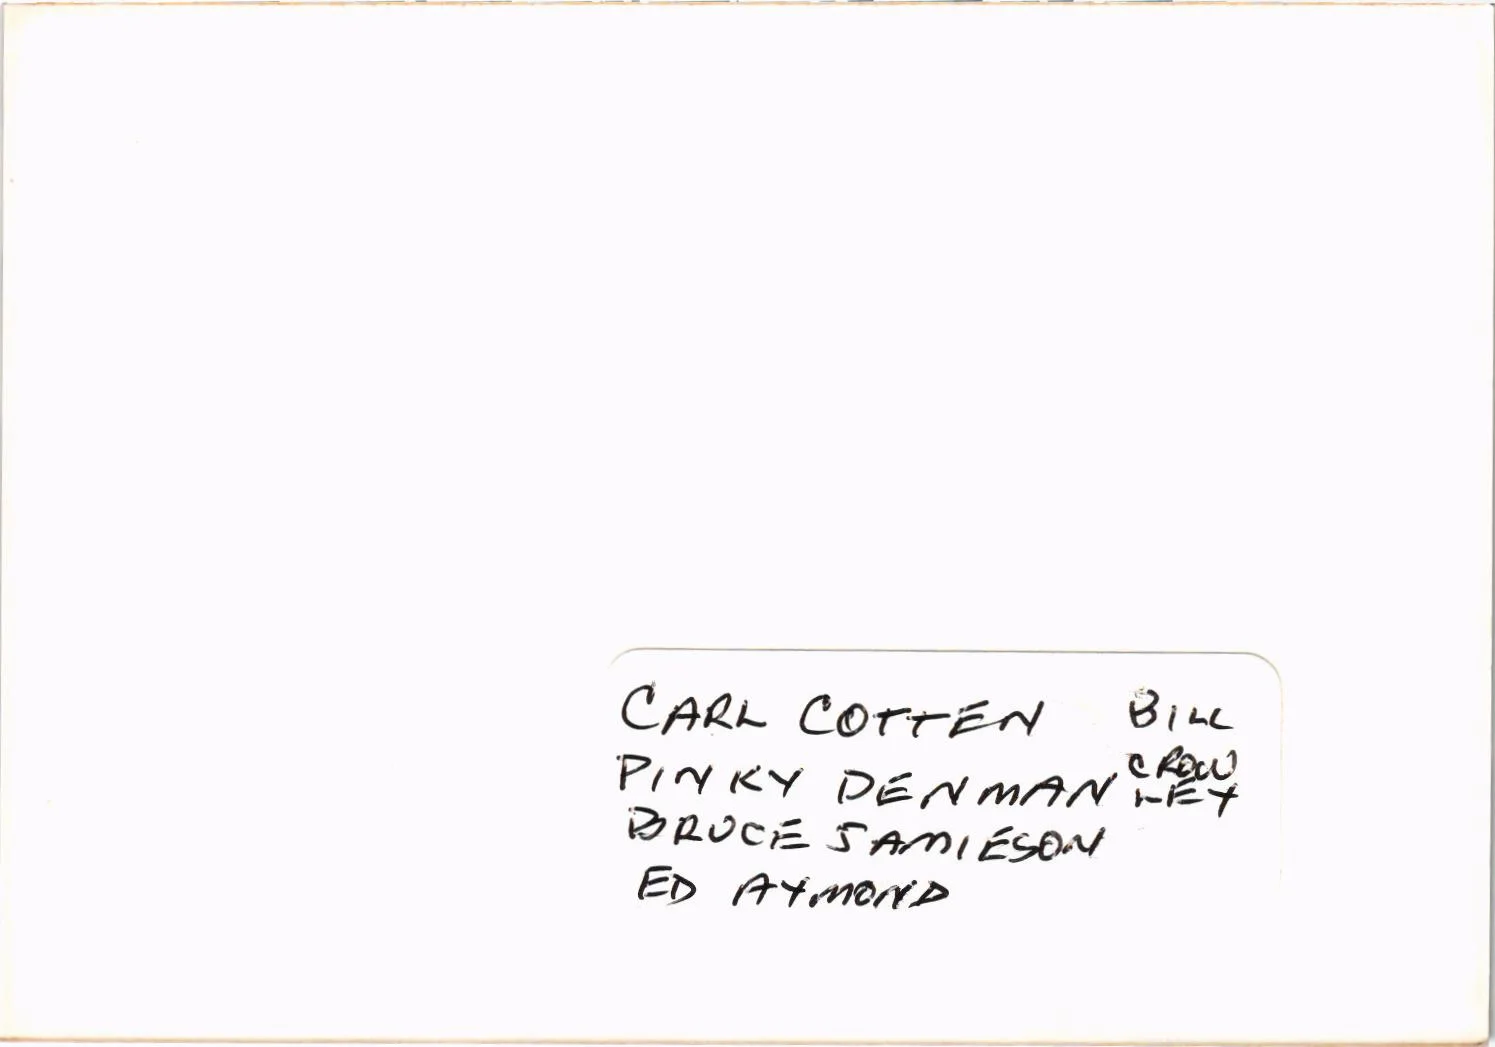 CARL COTTEN BILL
PINKY DENMAN CROW
LEY
BRUCE JAMIESON
ED AYMOND